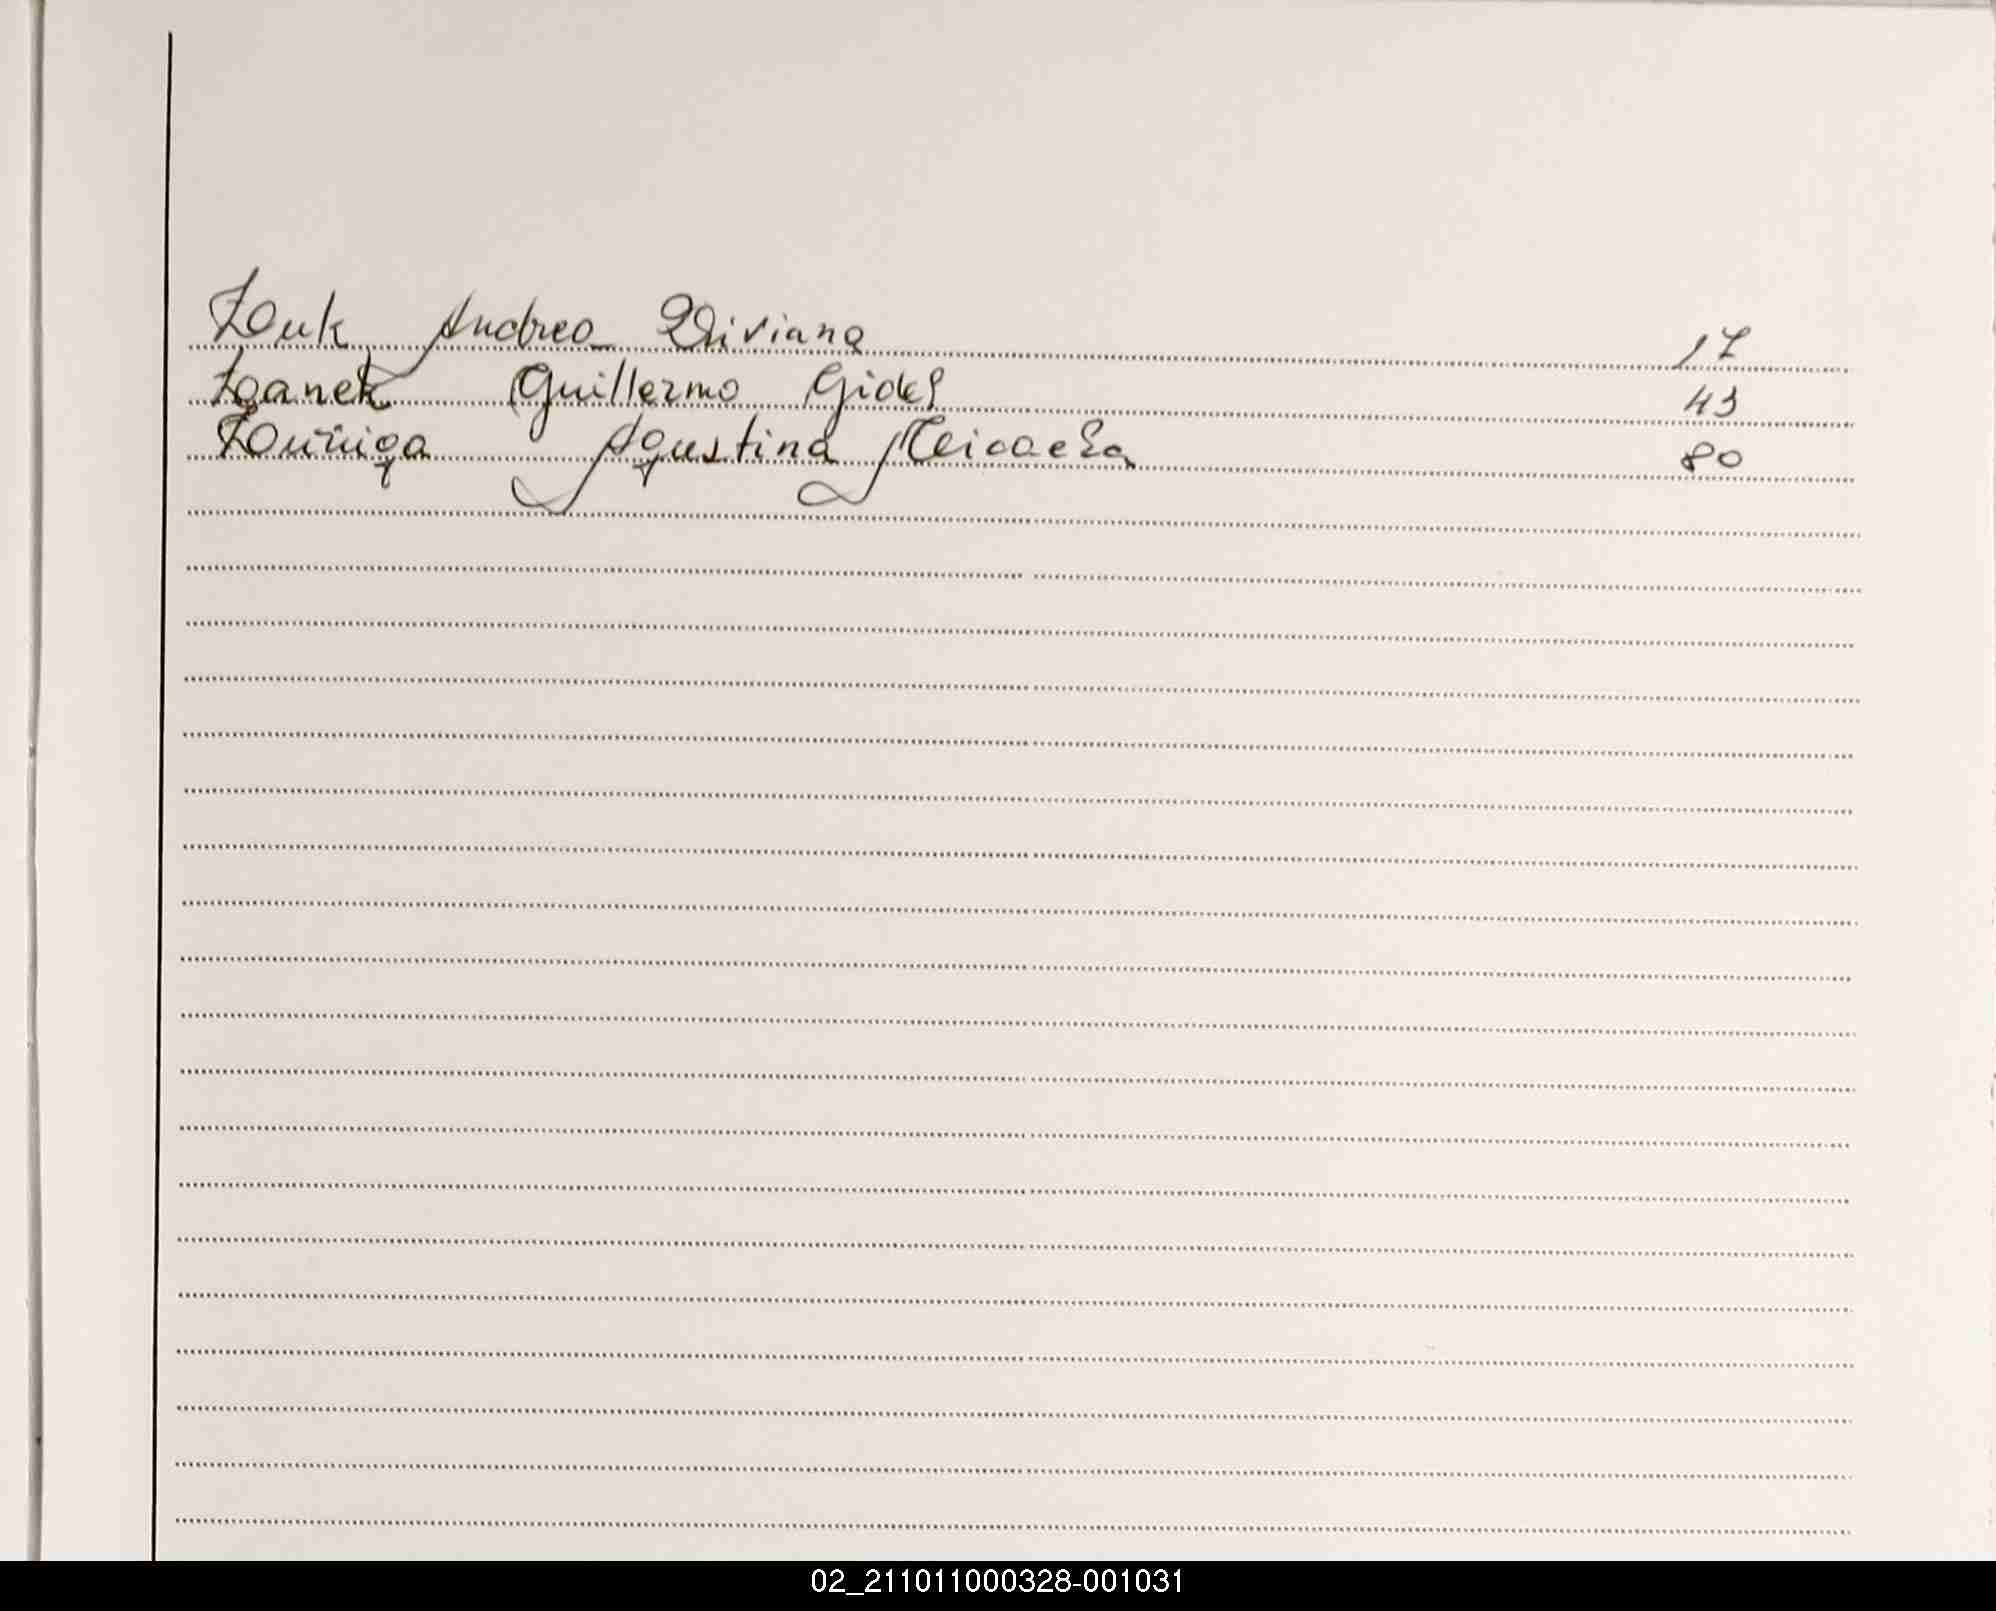 Zduk Andrea Viviana 17
Zanek Guillermo Gidel 43
Zuñiga Agustina Micaela 80
02_211011000328-001031